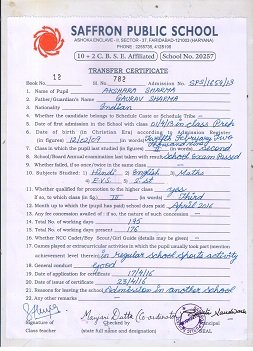 SAFFRON PUBLIC SCHOOL
ASHOKA ENCLAVE - II, SECTOR - 37, FARIDABAD-121003 (HARYANA)
10 + 2 C. B. S. E. Affiliated School No. 20257
TRANSFER CERTIFICATE
Book No. 12 782 Admission No. SPS/
1. Name of Pupil AKSHARA SHARMA
2. Father/Guardian's Name GAURAV SHARMA
3. Nationality Indian
4. Whether the candidate belongs to Schedule Caste or Schedule Tribe
5. Date of first admission in the School with class
6. Date of birth (in Christian Era) according to Admission Register
(in figures) (in words)
7. Class in which the pupil last studied (in words) Second
8. School/Board Annual examination last taken with result School Exam Passed
9. Whether failed, if so once/twice in the same class
10. Subjects Studied: 1. Hindi 2. English 3. Maths
4. E.V.S. 5.
11. Whether qualified for promotion to the higher class yes
If so, to which class (in fig) (in words) Third
12. Month up to which the pupil has paid school dues paid April 2016
13. Any fee concession availed of : if so, the nature of such concession
14. Total No. of working days 195
15. Total No. of working days present 176
16. Whether NCC Cadet/Boy Scout/Girl Guide (details may be given)
17. Games played or extracurricular activities in which the pupil usually took part (mention
achievement level therein) In regular school sports activity
18. General conduct Good
19. Date of application for certificate 17/4/16
20. Date of issue of certificate 23/4/16
21. Reasons for leaving the school Admission in another school
22. Any other remarks
Signature of Checked by
Class teacher (state full name and designation) SEAL